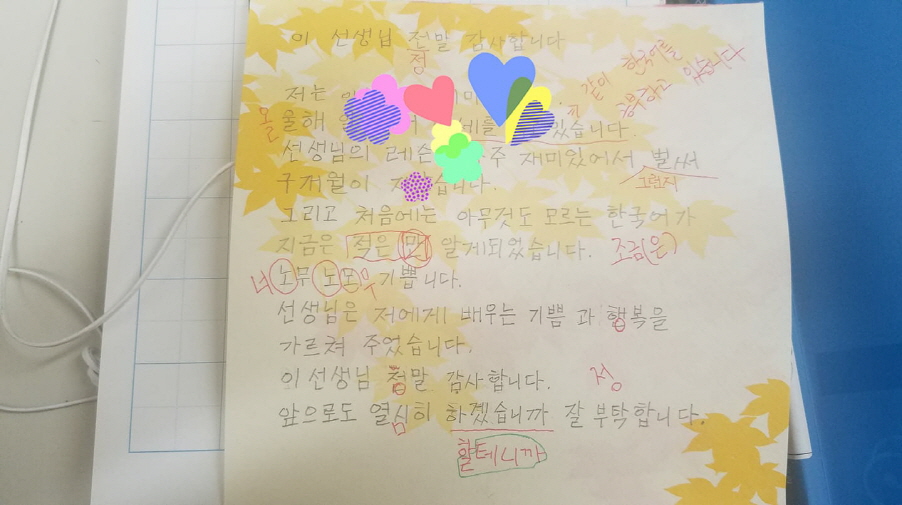 이 선생님 전말 감사합니다
정
저는
같이 한국어를
공부하고 있습니다
올
울해 를 있습니다.
선생님의 레슨 주 재미있어서 벌써
그런지
9개월이 습니다.
그리고 처음에는 아무것도 모르는 한국어가
지금은 적은 만 알게되었습니다. 조금(은)
너 노무 노무 무 기쁩니다.
선생님은 저에게 배우는 기쁨 과 행복을
가르쳐 주었습니다.
이 선생님 첨말 감사합니다. 정
앞으로도 열심히 하겠습니까 잘 부탁합니다.
할테니까